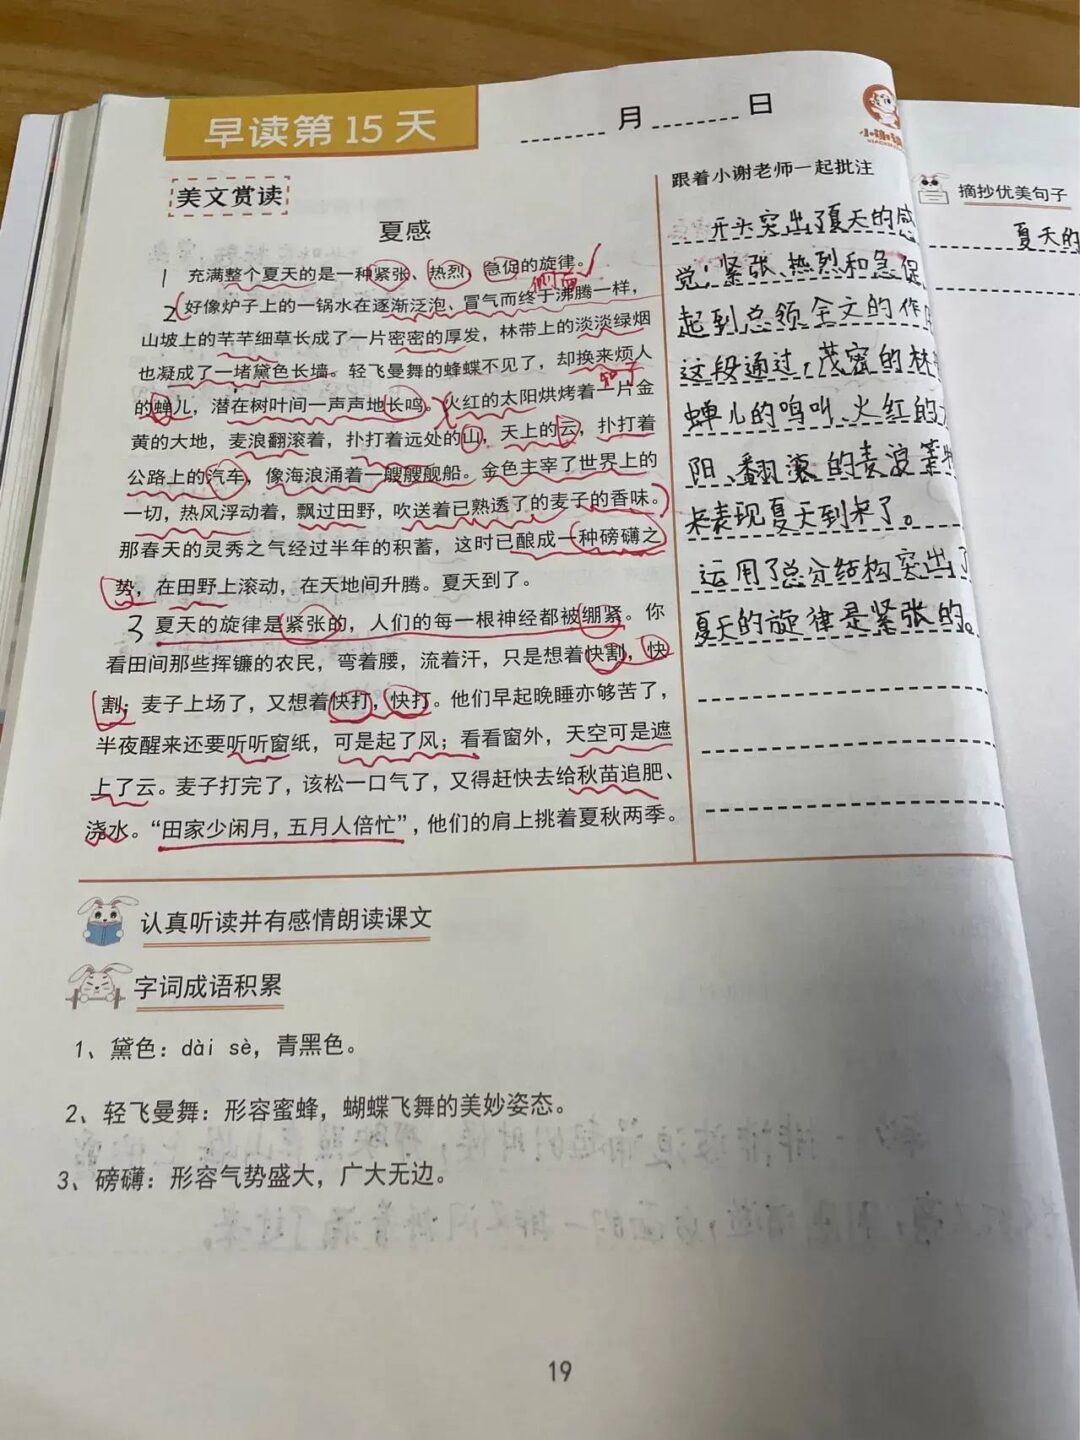 早读第 15 天
月 日
美文赏读
夏感
1 充满整个夏天的是一种紧张、热烈、急促的旋律。
2 好像炉子上的一锅水在逐渐泛泡、冒气而终于沸腾一样，
山坡上的芊芊细草长成了一片密密的厚发，林带上的淡淡绿烟
也凝成了一堵黛色长墙。轻飞曼舞的蜂蝶不见了，却换来烦人
的蝉儿，潜在树叶间一声声地长鸣。火红的太阳烘烤着一片金
黄的大地，麦浪翻滚着，扑打着远处的山，天上的云，扑打着
公路上的汽车，像海浪涌着一艘艘舰船。金色主宰了世界上的
一切，热风浮动着，飘过田野，吹送着已熟透了的麦子的香味。
那春天的灵秀之气经过半年的积蓄，这时已酿成一种磅礴之
势，在田野上滚动，在天地间升腾。夏天到了。
3 夏天的旋律是紧张的，人们的每一根神经都被绷紧。你
看田间那些挥镰的农民，弯着腰，流着汗，只是想着快割，快
割；麦子上场了，又想着快打，快打。他们早起晚睡亦够苦了，
半夜醒来还要听听窗纸，可是起了风；看看窗外，天空可是遮
上了云。麦子打完了，该松一口气了，又得赶快去给秋苗追肥、
浇水。“田家少闲月，五月人倍忙”，他们的肩上挑着夏秋两季。
跟着小谢老师一起批注
开头突出了夏天的感
觉：紧张、热烈和急促
起到总领全文的作
这段通过，茂密的林
蝉儿的鸣叫、火红的
阳、翻滚的麦浪等
来表现夏天到来了。
运用了总分结构突出了
夏天的旋律是紧张的。
认真听读并有感情朗读课文
字词成语积累
1、黛色：dài sè，青黑色。
2、轻飞曼舞：形容蜜蜂，蝴蝶飞舞的美妙姿态。
3、磅礴：形容气势盛大，广大无边。
19
摘抄优美句子
夏天的